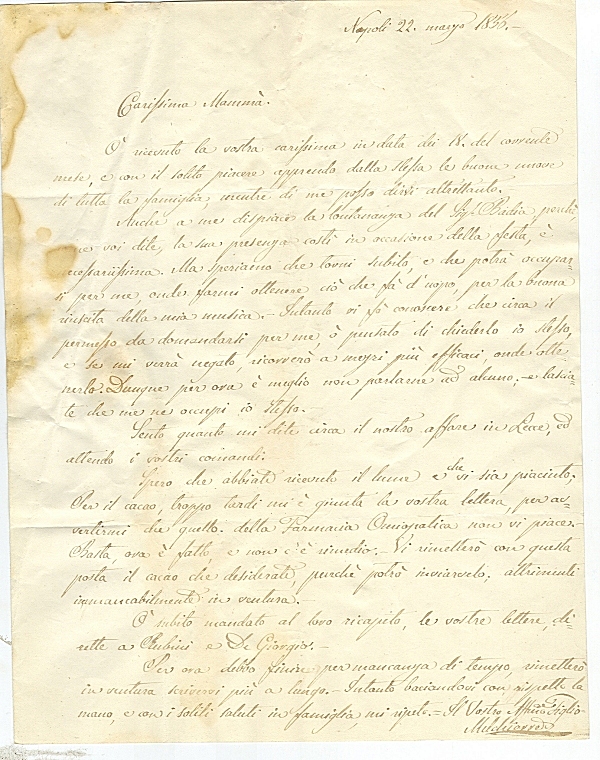 Napoli 22. marzo 1855.-
Carissima Mammà.
Ò ricevuto la vostra carissima in data dei 18. del corrente
mese, e con il solito piacere apprendo dalla stessa le buone nuove
di tutta la famiglia, mentre di me posso dirvi altrettanto.-
Anche a me dispiace la lontananza del Sig.r Badia perchè
voi dite, la sua presenza costì in occasione della festa, è
necessariissima. Ma speriamo che torni subito, e che potrà occupar=
si per me, onde farmi ottenere ciò che fà d'uopo per la buona
riuscita della mia musica.- Intanto vi fò conoscere che circa il
permesso da domandarsi per me, ò pensato di chiederlo io stesso,
e se mi verrà negato, ricorrerò a mezzi più efficaci, onde otte=
nerlo. Dunque per ora è meglio non parlarne ad alcuno,- e lascia=
te che me ne occupi io stesso.-
Sento quanto mi dite circa il nostro affare in Lecce, ed
attendo i vostri comandi.
Spero che abbiate ricevuto il lume e che vi sia piaciuto.
Per il cacao, troppo tardi mi è giunta la vostra lettera, per av=
vertirmi che quello della Farmacia Omiopatica non vi piace.-
Basta, ora è fatto, e non c'è rimedio.- Vi rimetterò con questa
posta il cacao che desiderate, purchè potrò inviarvelo, altrimenti
immancabilmente in ventura.-
Ò subito mandato al loro ricapito, le vostre lettere, di=
rette a Rubini e De Giorgio.-
Per ora debbo finire per mancanza di tempo, rimetterò
in ventura scrivervi più a lungo.- Intanto baciandovi con rispetto la
mano, e con i soliti saluti in famiglia, mi ripeto.- Il Vostro Aff.mo Figlio